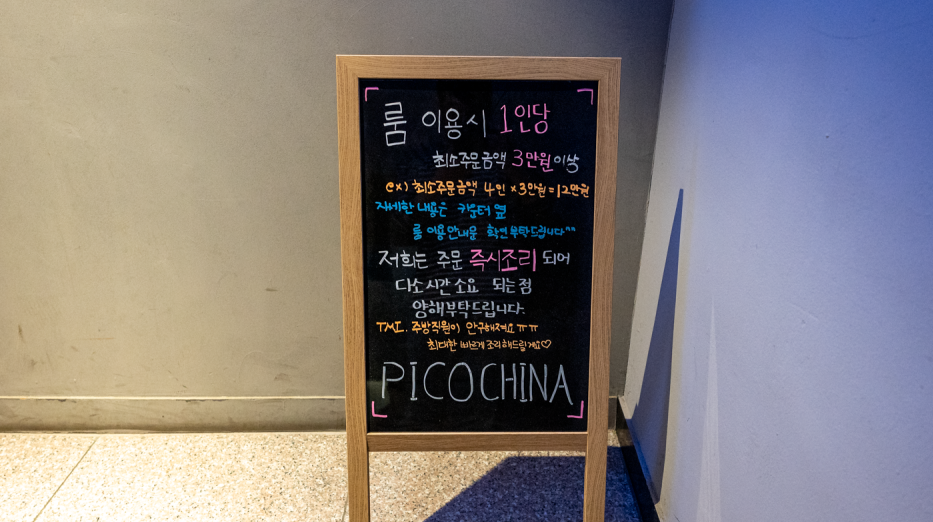 룸 이용시 1인당
최소주문금액 3만원이상
ex) 최소주문금액 4인 x 3만원 = 12만원
자세한 내용은 카운터 옆
룸 이용안내문 확인부탁드립니다^^
저희는 주문 즉시조리 되어
다소시간소요 되는점
양해부탁드립니다.
TMI. 주방직원이 안구해져요ㅠㅠ
최대한 빠르게조리해드릴게요♡
PICOCHINA